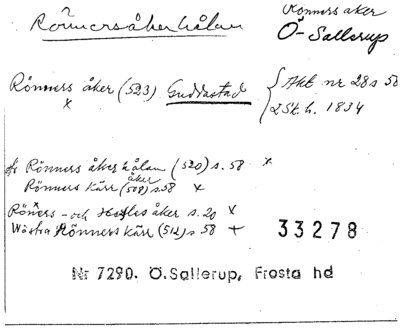 Rönnersåkerhålan
Rönners åker
Ö-Sallerup
Rönners åker (523) Guddastad
x
Akt nr 28 s 58
LSt. h. 1834
Rönners åker hålan (520) s. 58 x
åker
Rönners kärr (508) s. 58 x
x
Röners - och åker s. 20 x
Wästra Rönners kärr (512) s 58 +
33278
Nr 7290. Ö.Sallerup, Frosta hd